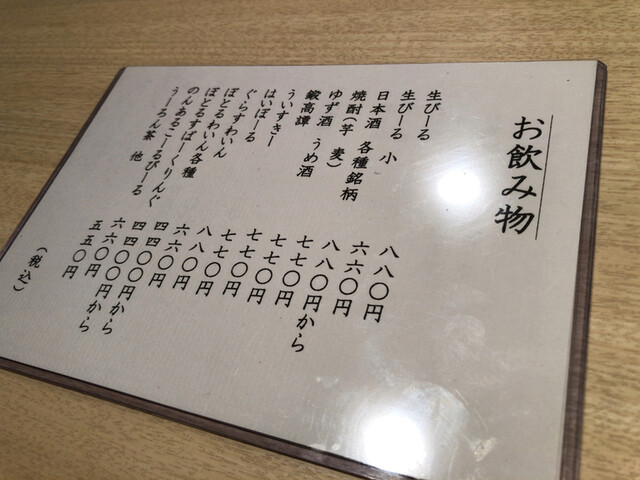 お飲み物
生びーる 八八〇円
生びーる 小 六六〇円
日本酒 各種銘柄 八八〇円から
焼酎(芋 麦) 七七〇円
ゆず酒 うめ酒 七七〇円
鍛高譚 七七〇円
ういすきー 七七〇円
はいぼーる 八八〇円
ぐらすわいん 六六〇円
ぼとるわいん各種 四四〇〇円から
ぼとるすぱーくりんぐ 六六〇〇円から
のんあるこーるびーる
うーろん茶 他 五五〇円
(税込)